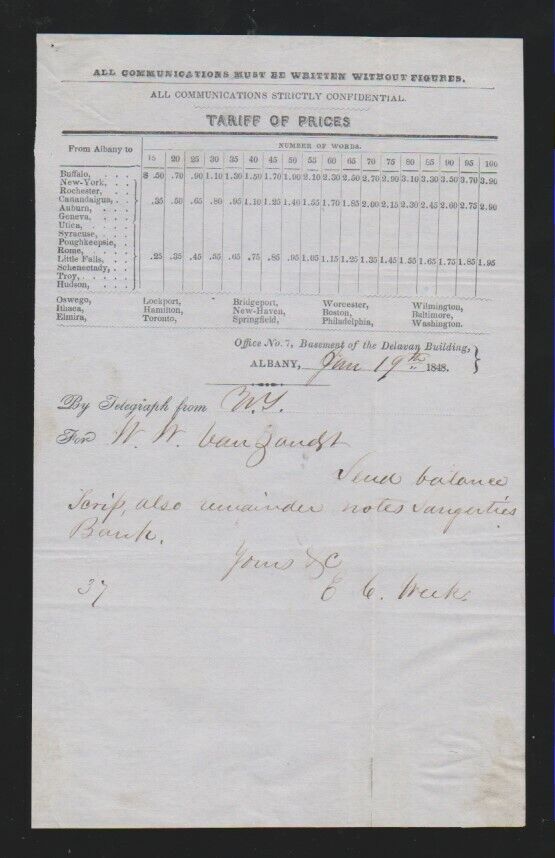 ALL COMMUNICATIONS MUST BE WRITTEN WITHOUT FIGURES.
ALL COMMUNICATIONS STRICTLY CONFIDENTIAL.
TARIFF OF PRICES
From Albany to
NUMBER OF WORDS.
15 20 25 30 35 40 45 50 55 60 65 70 75 80 85 90 95 100
Buffalo, . . . $ .50 .70 .90 1.10 1.30 1.50 1.70 1.90 2.10 2.30 2.50 2.70 2.90 3.10 3.30 3.50 3.70 3.90
New-York, . . .
Rochester,
Canandaigua, . . . .35 .50 .65 .80 .95 1.10 1.25 1.40 1.55 1.70 1.85 2.00 2.15 2.30 2.45 2.60 2.75 2.90
Auburn, . . .
Geneva, . . .
Utica, . . .
Syracuse, . . .
Poughkeepsie, .
Rome, . . . .
Little Falls, . . .25 .35 .45 .55 .65 .75 .85 .95 1.05 1.15 1.25 1.35 1.45 1.55 1.65 1.75 1.85 1.95
Schenectady, . .
Troy, . . . .
Hudson, . . .
Oswego, Lockport, Bridgeport, Worcester, Wilmington,
Ithaca, Hamilton, New-Haven, Boston, Baltimore,
Elmira, Toronto, Springfield, Philadelphia, Washington.
Office No. 7, Basement of the Delavan Building,
ALBANY, Jan 19th 1848.
By Telegraph from N.Y.
For W. W. Van Zandt
Send balance
Scrip, also remainder notes Saugerties
Bank.
Yours &C
E C. Weeks
37